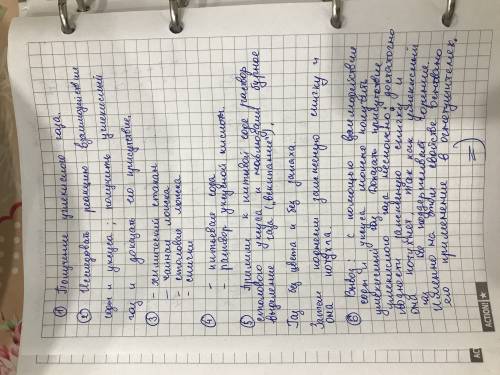 ① Получение углекислого газа
② Исследовать реакцию взаимодействие
соды и уксуса; получить углекислый
газ и доказать его присутствие.
③ - химический стакан
- чайная ложка
- столовая ложка
- спички
④ - питьевая сода
- раствор уксусной кислот.
⑤ Прилили к питьевой соде раствор
столового уксуса и наблюдали бурное
выделение газа („вскипание").
Газ без цвета и без запаха
Затем поднесли зажженную спичку и
она потухла.
⑥ Вывод: с помощью взаимодействие
соды и уксуса можно получить
углекислый газ. Доказать присутствие
углекислого газа несложно: достаточно
поднести зажженную спичку и
она потухнет, так как углекислый
газ не поддерживает горение.
Именно на этом свойстве основано
его применение в огнетушителях.
ACTION!